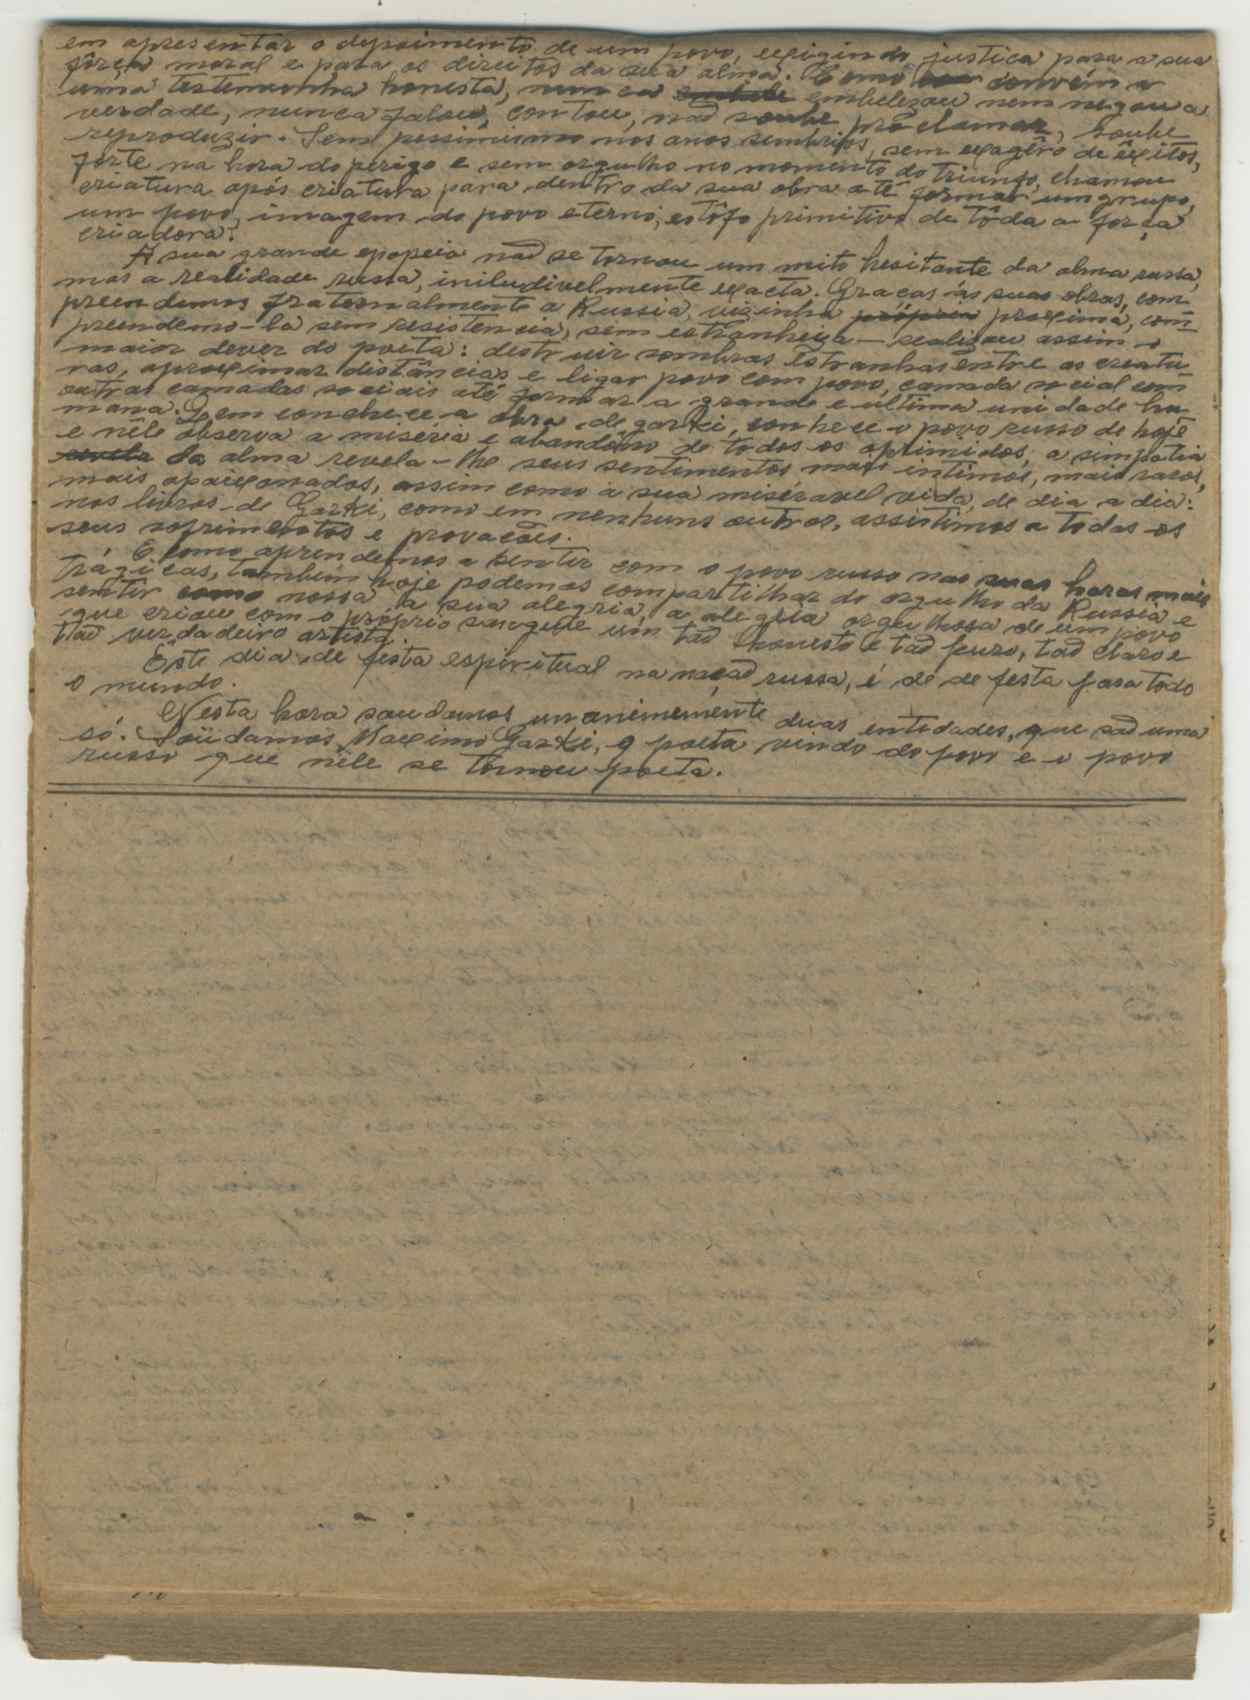 em apresentar o depoimento de um povo, exigindo justiça para a sua
fôrça moral e para os direitos da sua alma. Como convém a
uma testemunha honesta, nunca embelezou nem negou a
verdade, nunca falou, contou, não soube proclamar, soube
reproduzir. Sem pessimismo nos anos sombrios, sem exagêro de êxitos,
forte na hora do perigo e sem orgulho no momento do triunfo, chamou
criatura após criatura para dentro da sua obra até formar um grupo,
um povo, imagem do povo eterno, estôfo primitivo de tôda a força
criadora.
A sua grande epopeia não se tornou um mito hesitante da alma russa,
mas a realidade russa, iniludivelmente exacta. Graças às suas obras, com-
preendemos fraternalmente a Russia, vizinha próxima, com-
preendemo-la sem resistencia, sem estranheza — realizou assim o
maior dever do poeta: destruir sombras estranhas entre as creatu-
ras, aproximar distâncias e ligar povo com povo, camada social com
outras camadas sociais até formar a grande e ultima unidade hu-
mana. Quem conhece a obra de Gorki, conhece o povo russo de hoje
e nele observa a miséria e abandono de todos os oprimidos, a simpatia
da alma revela-lhe seus sentimentos mais intimos, mais raros,
mais apaixonados, assim como a sua misérável vida, de dia a dia:
nos livros de Gorki, como em nenhuns outros, assistimos a todos os
seus sofrimentos e provações.
E como aprendemos a sentir com o povo russo nas suas horas mais
trágicas, também hoje podemos compartilhar do orgulho da Russia e
sentir como nossa a sua alegria, a alegria orgulhosa de um povo
que criou com o próprio sangue um tão honesto e tão puro, tão claro e
tão verdadeiro artista.
Êste dia de festa espiritual na nação russa, é de de festa para todo
o mundo.
Nesta hora saudamos unanimemente duas entidades, que são uma
só. Saüdamos Maximo Gorki, o poeta vindo do povo e o povo
russo que nêle se tornou poeta.